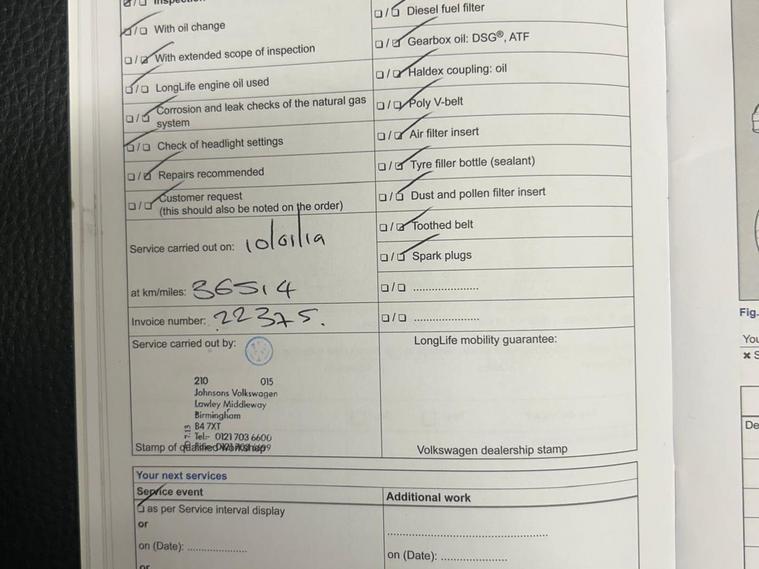 Inspection
With oil change
With extended scope of inspection
LongLife engine oil used
Corrosion and leak checks of the natural gas
system
Check of headlight settings
Repairs recommended
Customer request
(this should also be noted on the order)
Service carried out on: 10/01/19
at km/miles: 36514
Invoice number: 22375.
Service carried out by:
210 015
Johnsons Volkswagen
Lawley Middleway
Birmingham
B4 7XT
Tel:- 0121 703 6600
Stamp of qualified workshop
Diesel fuel filter
Gearbox oil: DSG®, ATF
Haldex coupling: oil
Poly V-belt
Air filter insert
Tyre filler bottle (sealant)
Dust and pollen filter insert
Toothed belt
Spark plugs
......................
......................
LongLife mobility guarantee:
Volkswagen dealership stamp
Your next services
Service event
as per Service interval display
or
on (Date): ....................
or
Additional work
......................................................
on (Date): ......................
Fig.
You
De